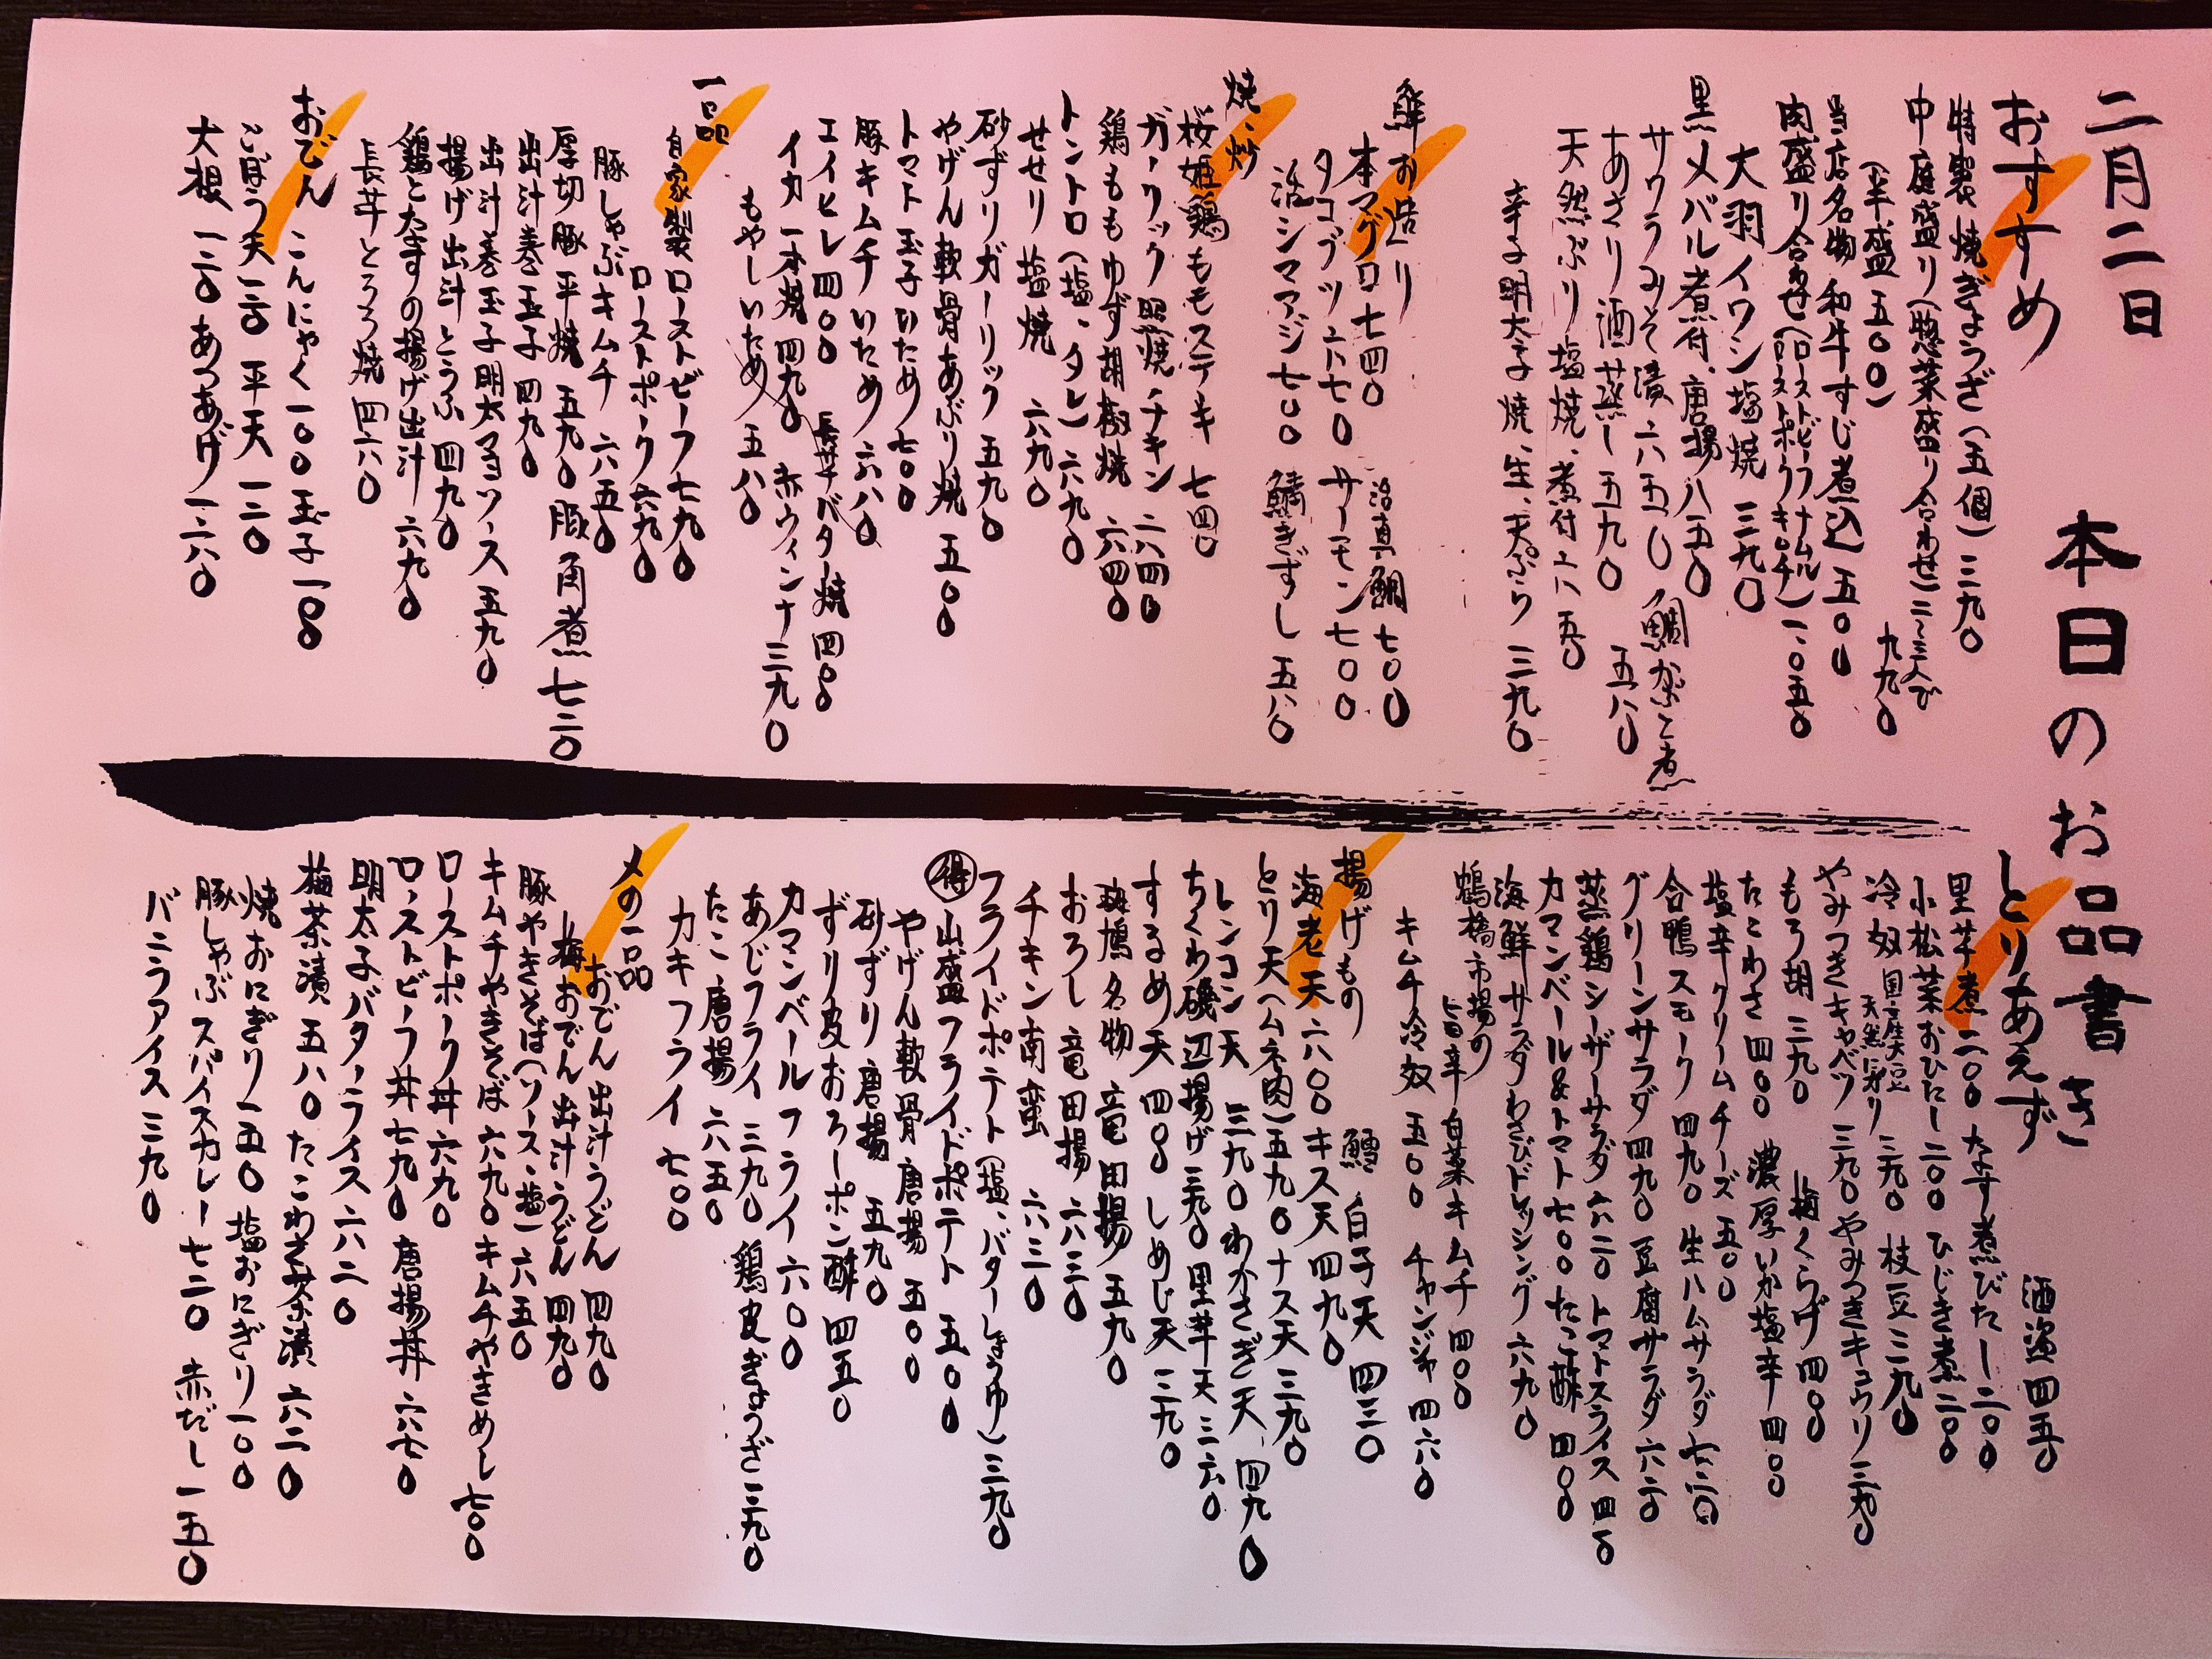 二月二日
本日のお品書き
おすすめ
特製焼ぎょうざ(五個)三九〇
中庭盛り(惣菜盛り合わせ)二~三人で
(半盛五〇〇) 九九〇
当店名物和牛すじ煮込 五〇〇
肉盛り合わせ(ローストビーフナムル ローストポークキムチ)一、〇五〇
大羽イワシ塩焼 三九〇
黒メバル煮付、唐揚 八五〇
サワラみそ漬 六五〇 鯛かぶと煮
あさり酒蒸し 五九〇 五八〇
天然ぶり塩焼、煮付 六五〇
辛子明太子焼、生、天ぷら 三九〇
鮮お造り
本マグロ 七四〇 活真鯛 七〇〇
タコブツ 六七〇 サーモン 七〇〇
活シマアジ 七〇〇 鯖きずし 五八〇
焼、炒
桜姫鶏ももステキ 七四〇
ガーリック照焼チキン 六四〇
鶏ももゆず胡椒焼 六四〇
トントロ(塩、タレ)六九〇
せせり塩焼 六九〇
砂ずりガーリック 五九〇
やげん軟骨あぶり焼 五〇〇
トマト玉子いため 七〇〇
豚キムチいため 六八〇
エイヒレ 四〇〇 長芋バター焼 四〇〇
イカ一本焼 四九〇 赤ウィンナ 三九〇
もやしいため 五八〇
一品
自家製ローストビーフ 七九〇
ローストポーク 六九〇
豚しゃぶキムチ 六五〇
厚切豚平焼 五九〇 豚角煮 七二〇
出汁巻玉子 四九〇
出汁巻玉子明太マヨソース 五九〇
揚げ出汁とうふ 四九〇
鶏となすの揚げ出汁 六九〇
長芋とろろ焼 四六〇
おでん こんにゃく 一〇〇 玉子 一〇〇
ごぼう天 一二〇 平天 一二〇
大根 一二〇 あつあげ 一六〇
とりあえず
酒盗 四五〇
里芋煮 二〇〇 なす煮びたし 二〇〇
小松菜おひたし 二〇〇 ひじき煮 二〇〇
冷奴 国産大豆 天然にがり 三九〇 枝豆 三九〇
やみつきキャベツ 三九〇 やみつきキュウリ 三九〇
もろ胡 三九〇 梅くらげ 四〇〇
たこわさ 四〇〇 濃厚いか塩辛 四〇〇
塩辛クリームチーズ 五〇〇
合鴨スモーク 四九〇 生ハムサラダ 七二〇
グリーンサラダ 四九〇 豆腐サラダ 六二〇
蒸鶏シーザーサラダ 六二〇 トマトスライス 四〇〇
カマンベール&トマト 七〇〇 たこ酢 四〇〇
海鮮サラダわさびドレッシング 六九〇
鶴橋市場の
旨辛白菜キムチ 四〇〇
キムチ冷奴 五〇〇 チャンジャ 四六〇
揚げもの 鱈白子天 四三〇
海老天 六八〇 キス天 四九〇
とり天(ムネ肉)五九〇 ナス天 三九〇
レンコン天 三九〇 わかさぎ天 四九〇
ちくわ磯辺揚げ 三九〇 里芋天 三六〇
するめ天 四〇〇 しめじ天 三九〇
斑鳩名物竜田揚 五九〇
おろし竜田揚 六三〇
チキン南蛮 六三〇
フライドポテト(塩、バターしょうゆ)三九〇
得 山盛フライドポテト 五〇〇
やげん軟骨唐揚 五〇〇
砂ずり唐揚 五九〇
ずり皮おろしポン酢 四五〇
カマンベールフライ 六〇〇
あじフライ 三九〇 鶏皮ぎょうざ 三九〇
たこ唐揚 六五〇
カキフライ 七〇〇
〆の一品
おでん出汁うどん 四九〇
梅おでん出汁うどん 四九〇
豚やきそば(ソース・塩)六五〇
キムチやきそば 六九〇 キムチやきめし 七〇〇
ローストポーク丼 六九〇
ローストビーフ丼 七九〇 唐揚丼 六七〇
明太子バターライス 六二〇
梅茶漬 五八〇 たこわさ茶漬 六二〇
焼おにぎり 一五〇 塩おにぎり 一〇〇
豚しゃぶスパイスカレー 七二〇 赤だし 一五〇
バニラアイス 三九〇